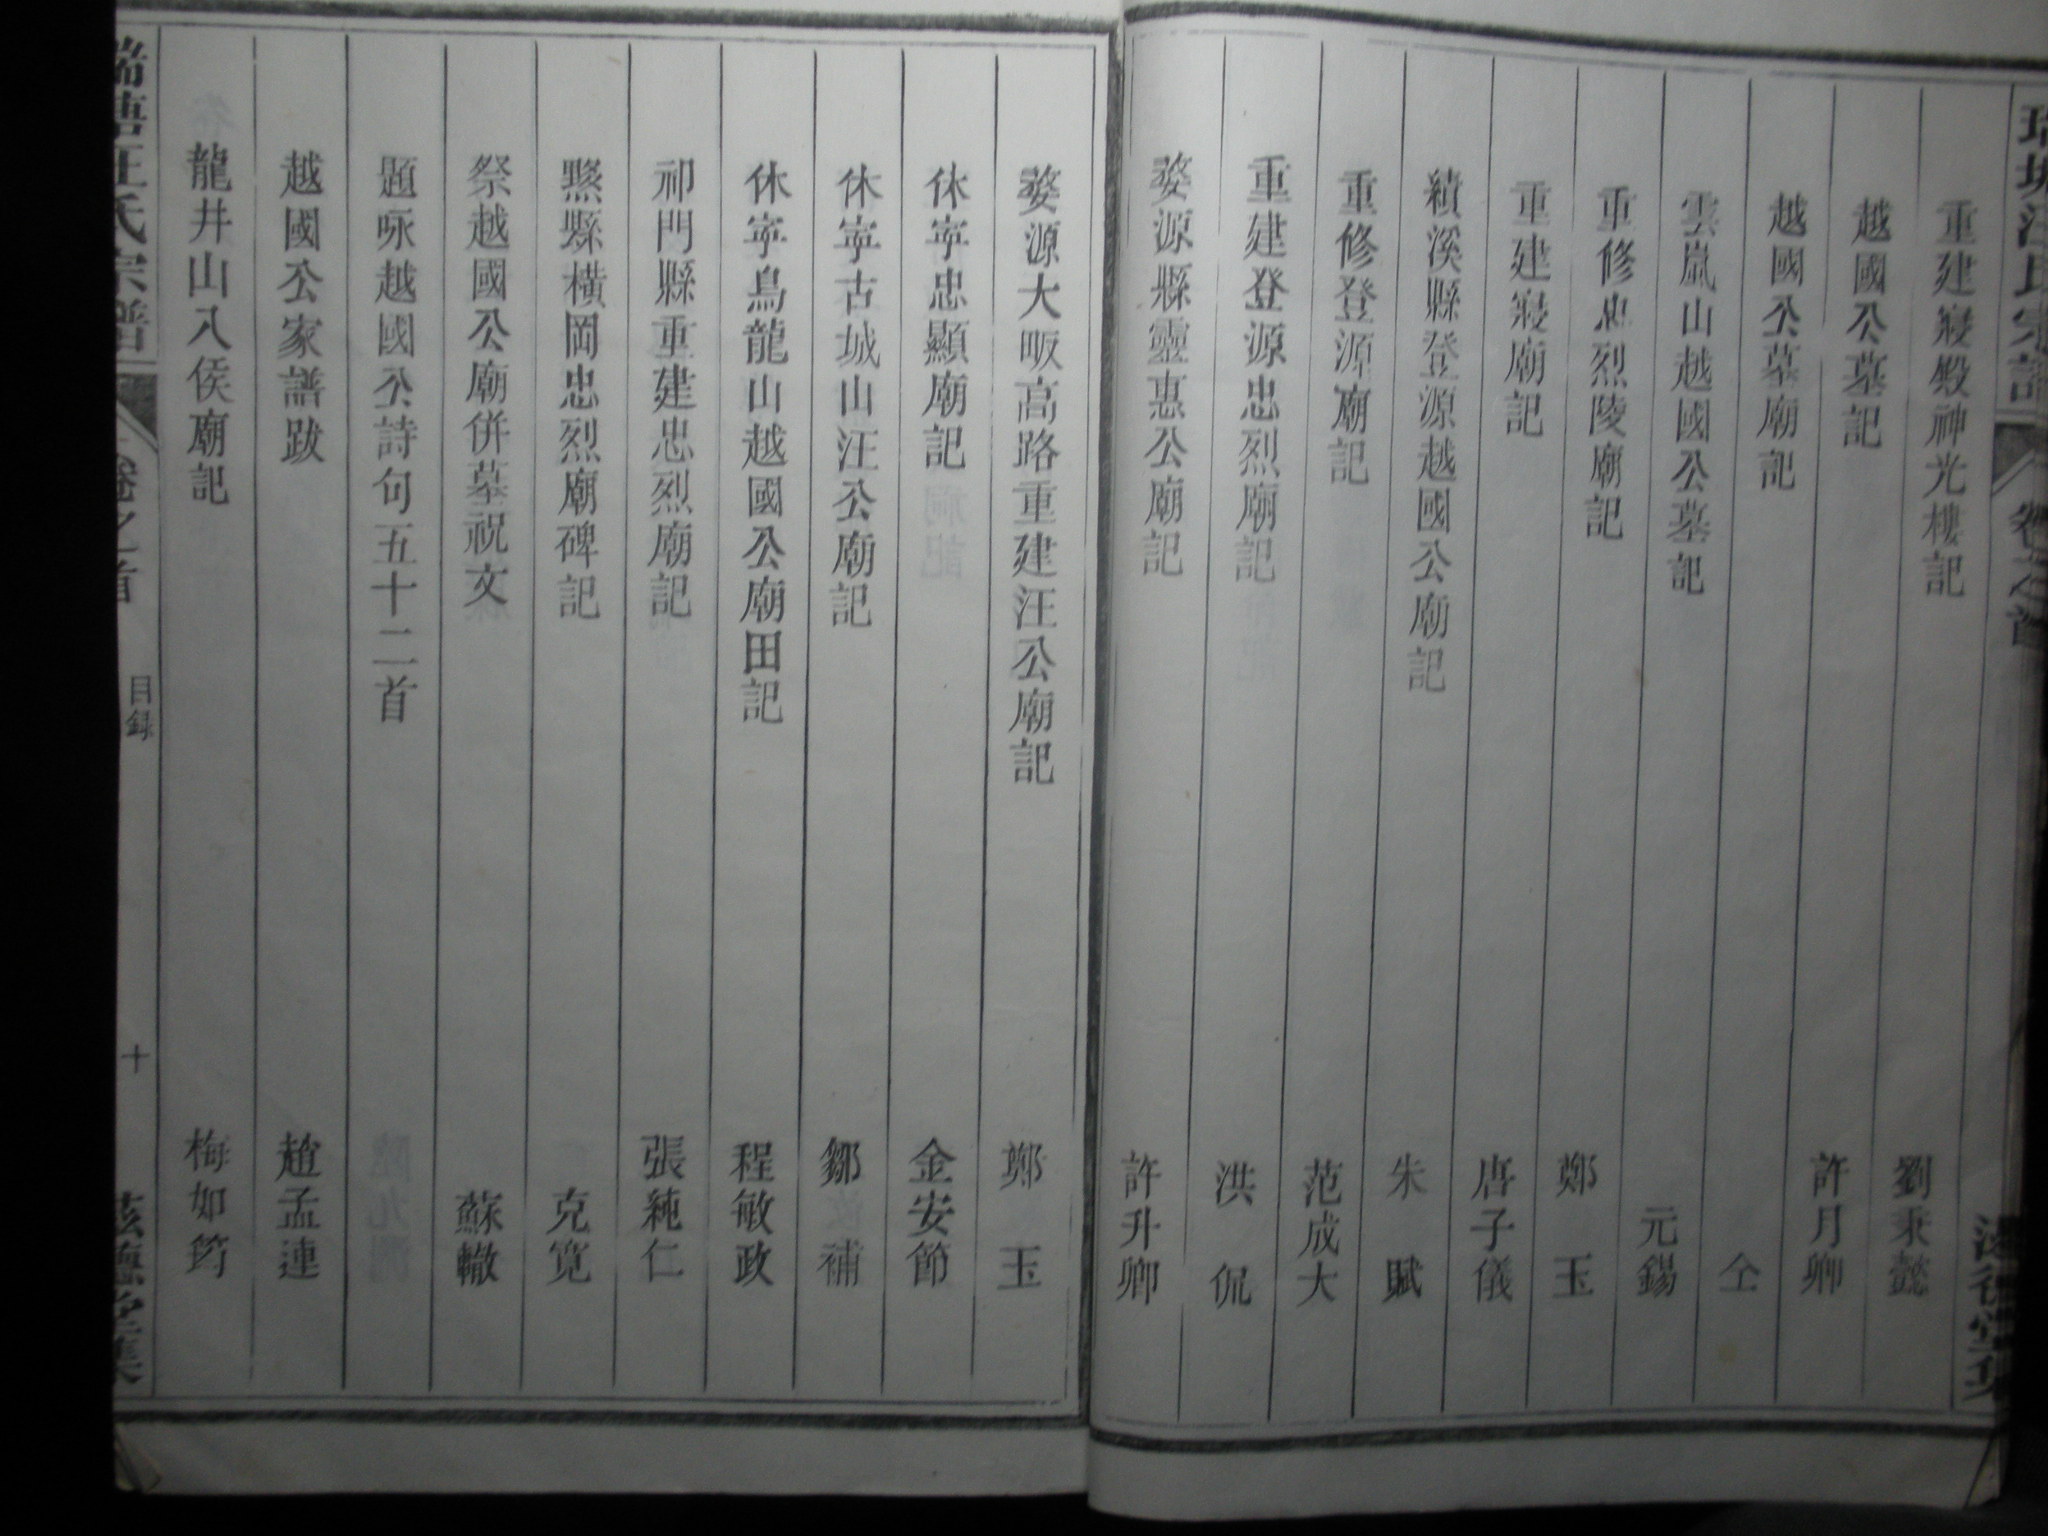 重建寢殿神光樓記 劉秉懿
越國公墓記 許月卿
越國公墓廟記 仝
雲嵐山越國公墓記 元錫
重修忠烈陵廟記 鄭玉
重建寢廟記 唐子儀
績溪縣登源越國公廟記 朱賦
重修登源廟記 范成大
重建登源忠烈廟記 洪侃
婺源縣靈惠公廟記 許升卿
婺源大畈高路重建汪公廟記 鄭玉
休寧忠顯廟記 金安節
休寧古城山汪公廟記 鄒補
休寧烏龍山越國公廟田記 程敏政
祁門縣重建忠烈廟記 張純仁
黟縣橫岡忠烈廟碑記 克寬
祭越國公廟併墓祝文 蘇轍
題咏越國公詩句五十二首
越國公家譜跋 趙孟連
龍井山八侯廟記 梅如筠
汪氏宗譜 卷之首 目録 十